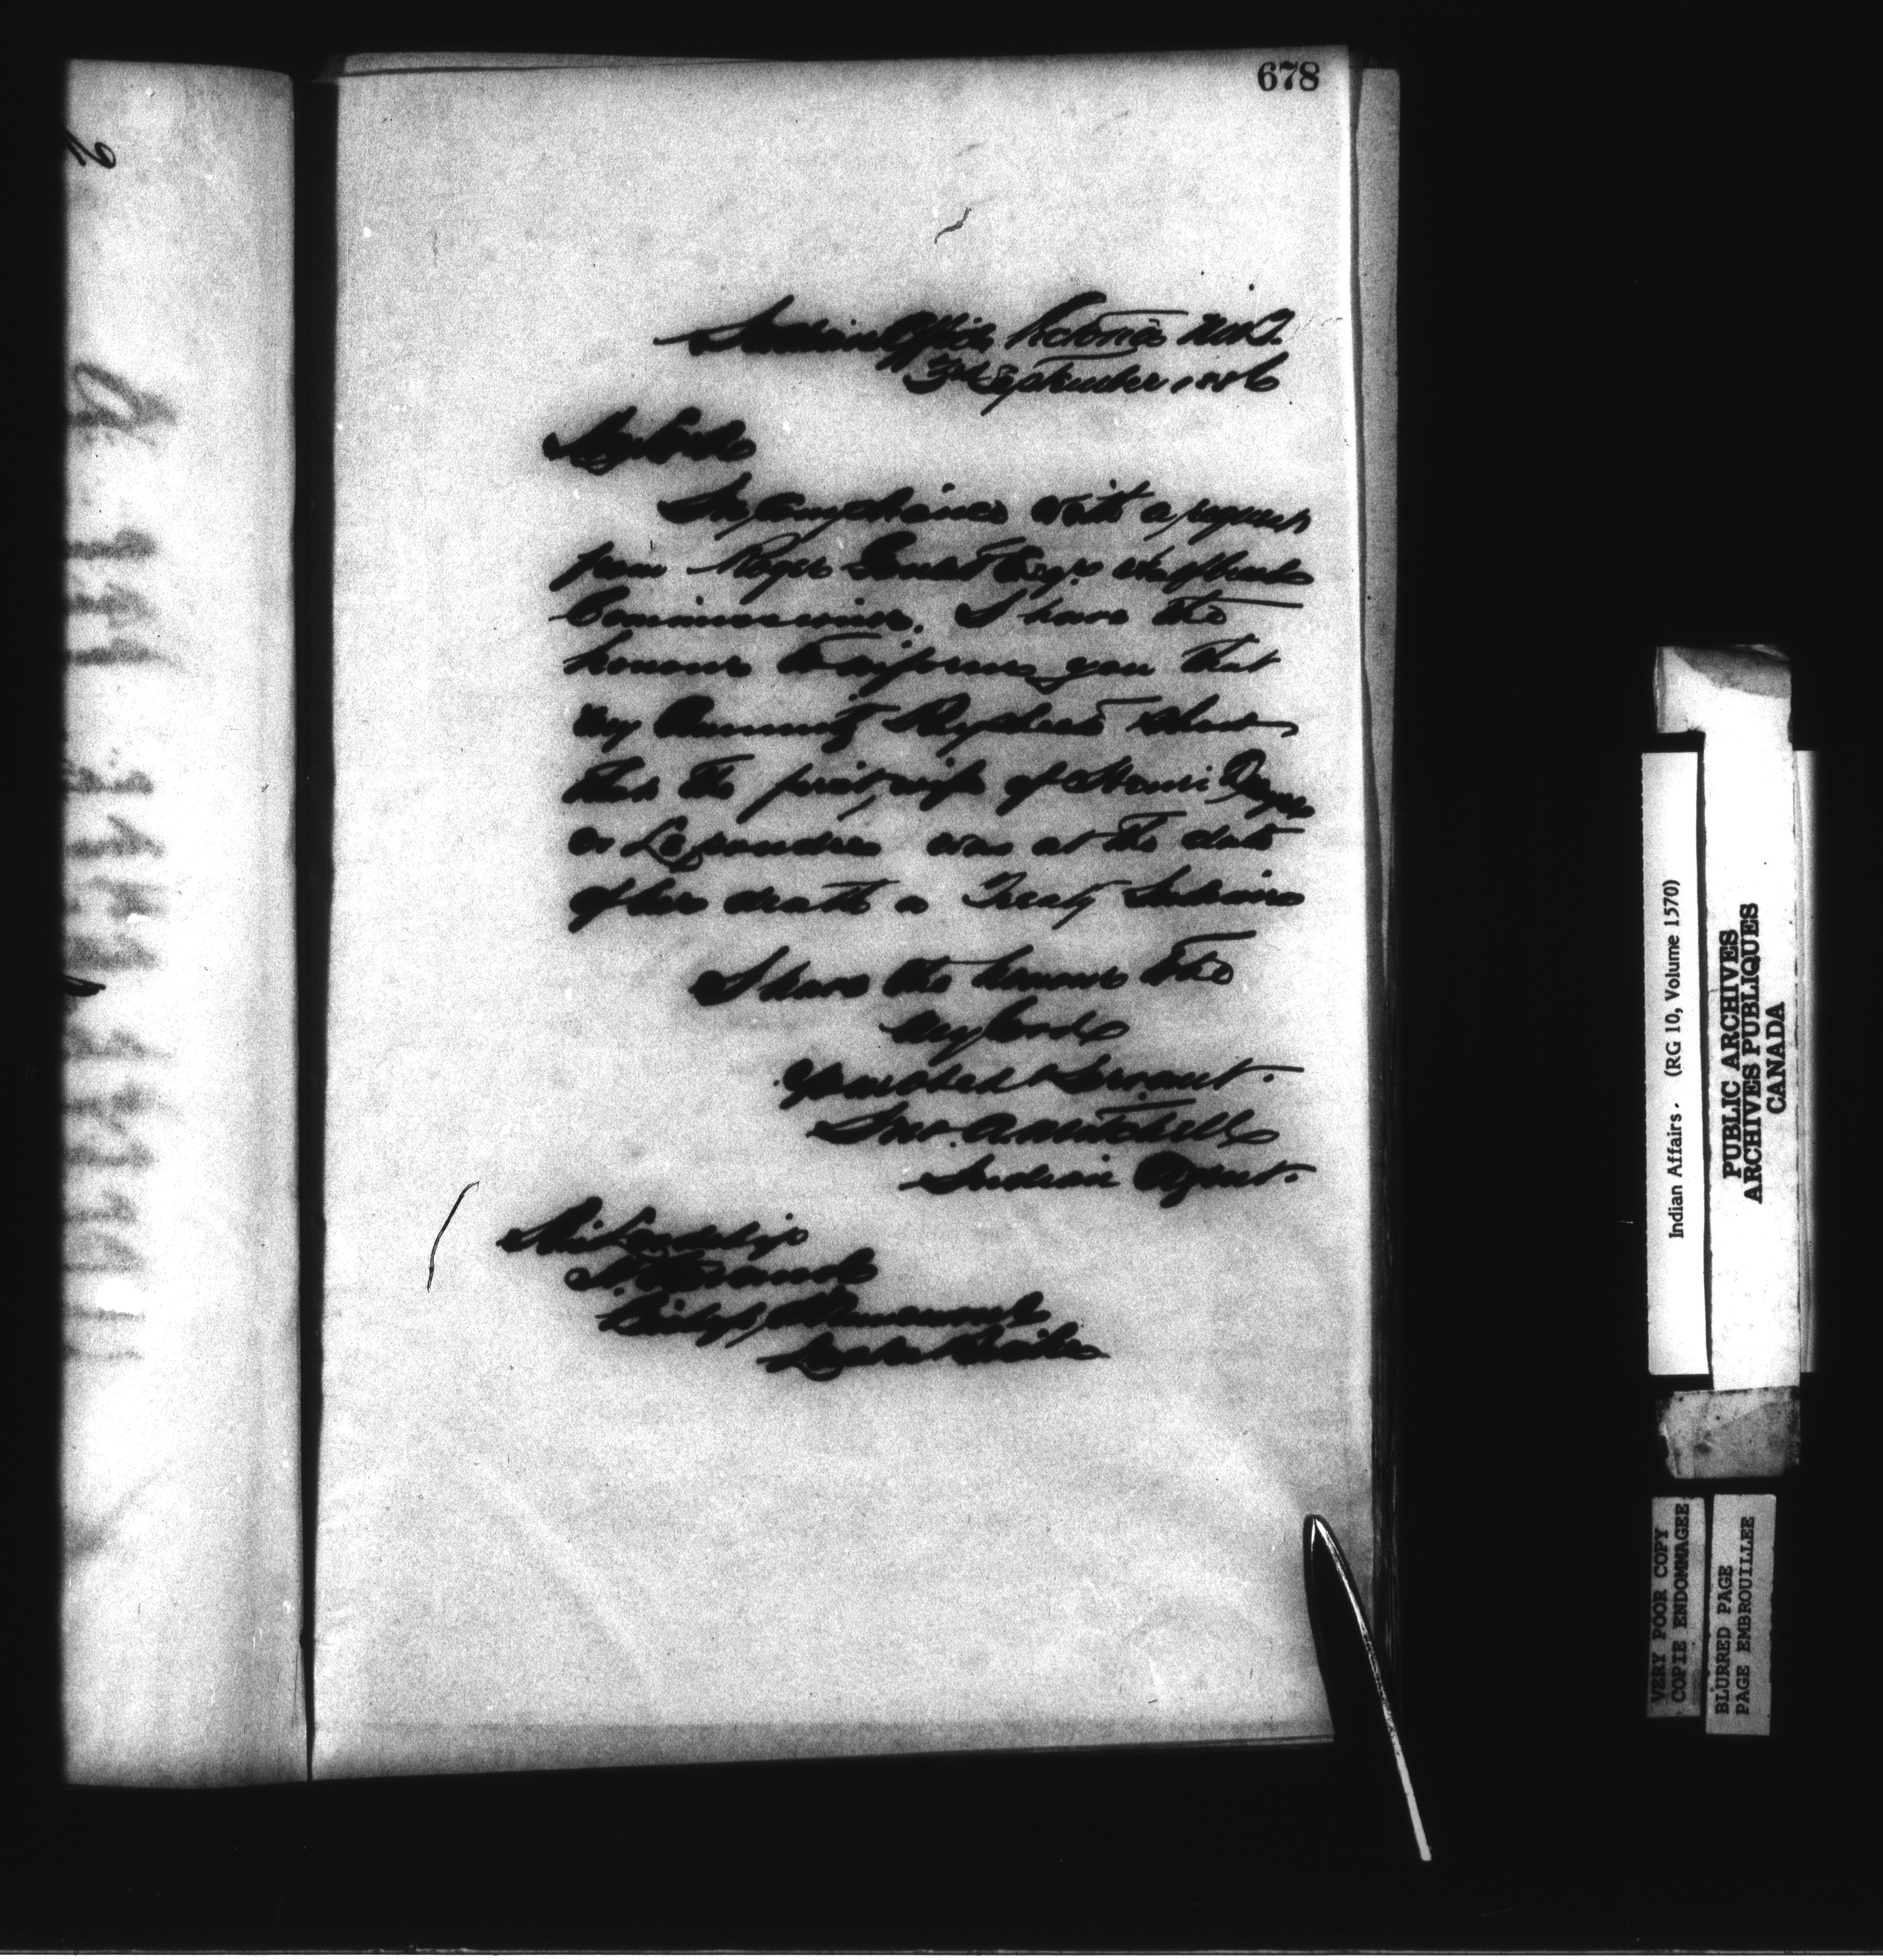 678
Indian Office Victoria N.W.T.
3rd September 1886
My Lord
In compliance with a request
from Roger Goulet Esq. Halfbreed
Commissioner. I have the
honour to inform you that
my Annuity Paysheets show
that the first wife of
or was at the date
of her death a Treaty Indian
I have the honour to be
My Lord
Your obed Servant.
Jno. A. Mitchell
Indian Agent.
His Lordship
V. Grandin
Bishop,
Indian Affairs. (RG 10, Volume 1570)
PUBLIC ARCHIVES
ARCHIVES PUBLIQUES
CANADA
VERY POOR COPY
COPIE ENDOMMAGEE
BLURRED PAGE
PAGE EMBROUILLEE